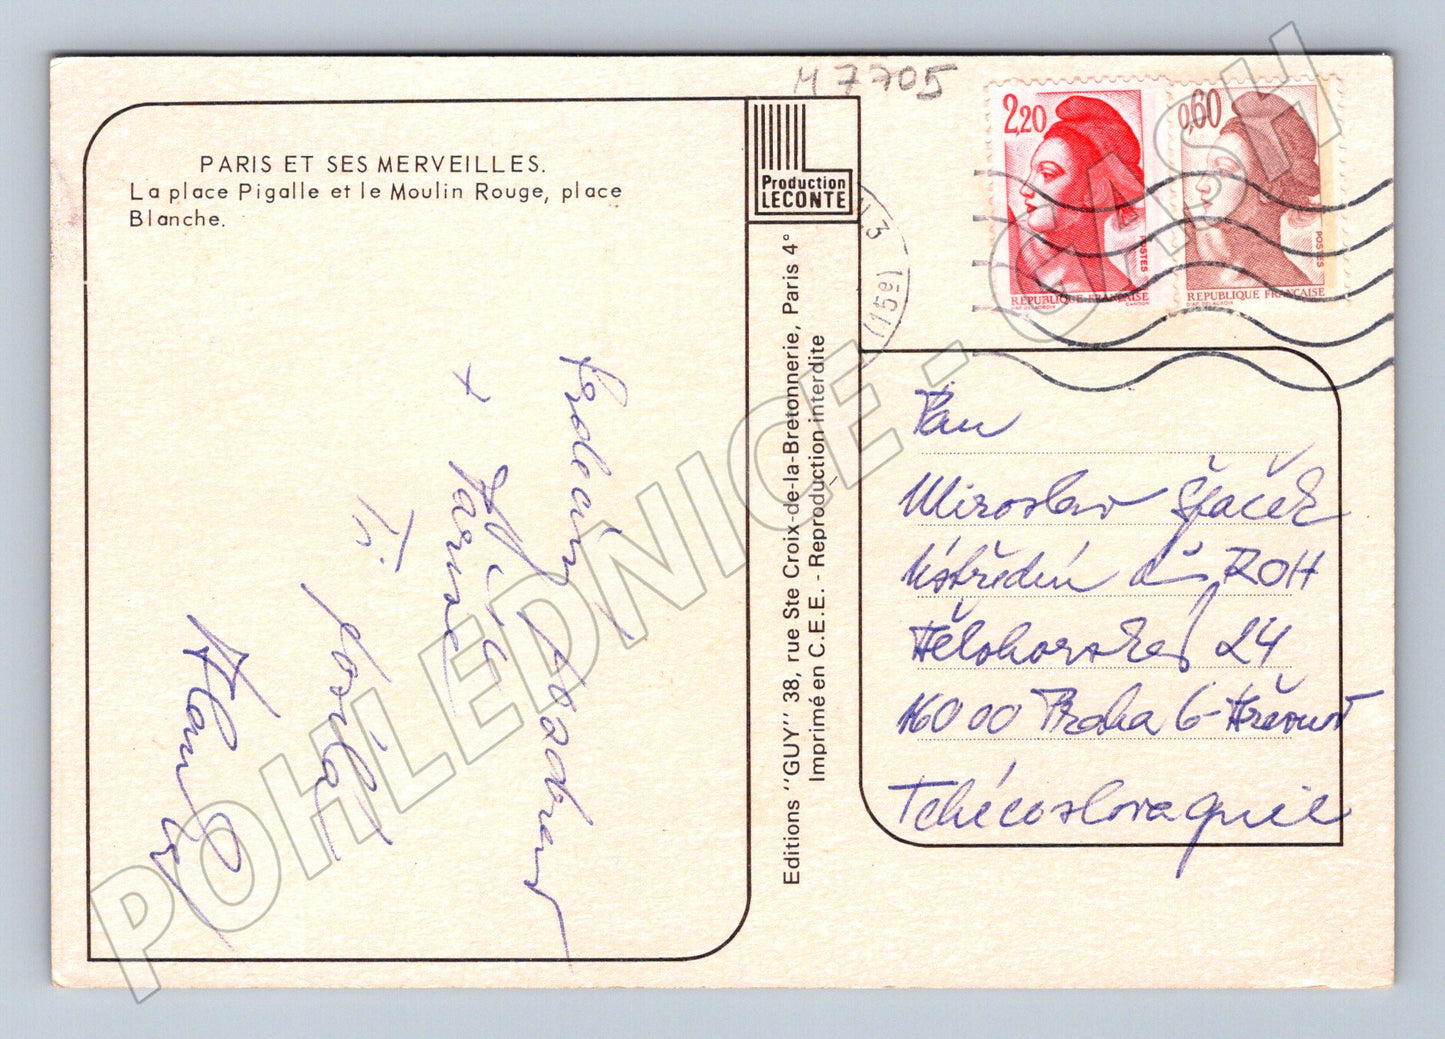 M 7705
PARIS ET SES MERVEILLES.
La place Pigalle et le Moulin Rouge, place
Blanche.
Production
LECONTE
2,20
POSTES
REPUBLIQUE FRANÇAISE
0,60
POSTES
REPUBLIQUE FRANÇAISE
N.3
(15e)
Srdečný pozdrav
z Paříže
Ti
posílá
Editions "GUY" 38, rue Ste Croix-de-la-Bretonnerie, Paris 4°
Imprimé en C.E.E. - Reproduction interdite
Pan
Miroslav
Ústřední dům ROH
Bělohorská 24
160 00 Praha 6-Břevnov
Tchécoslovaquie
POHLEDNICE - CASH